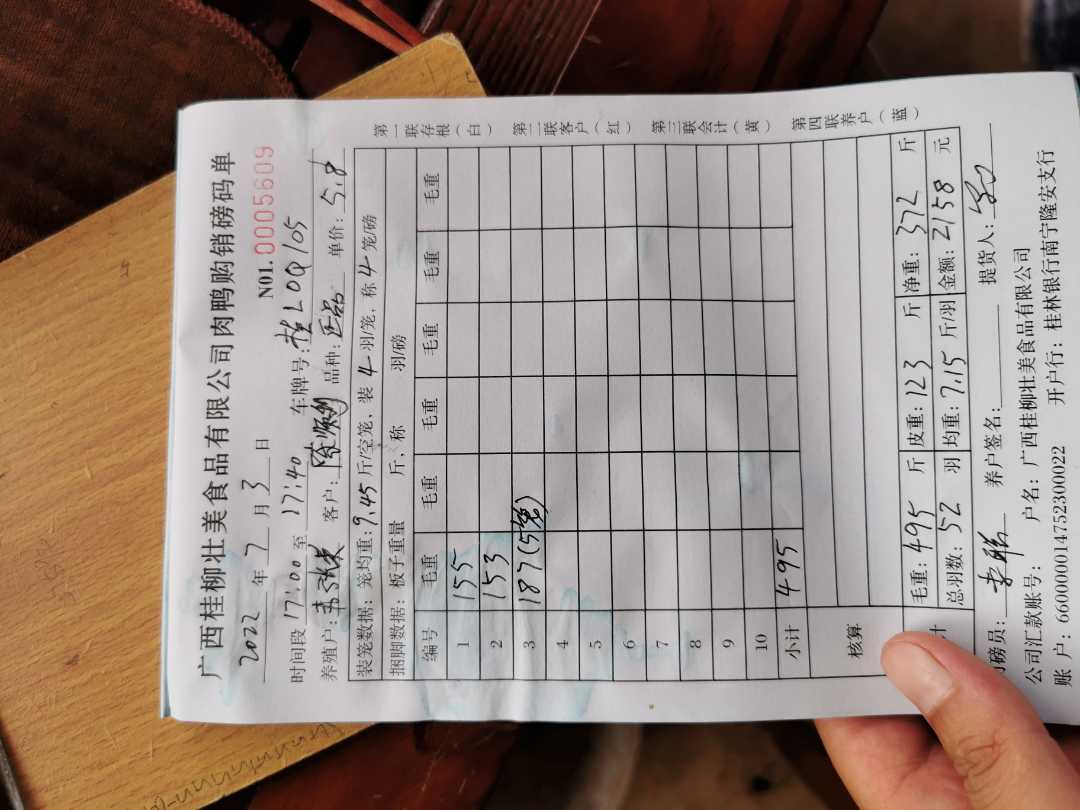 广西桂柳壮美食品有限公司肉鸭购销磅码单
2022 年 7 月 3 日 N01. 0005609
时间段 17:00 至 17:40 车牌号: 桂LOQ105
养殖户: 客户: 陈顺利 品种: 正品 单价: 5.8
装笼数据: 笼均重: 9.45 斤/空笼、装 4 羽/笼, 称 4 笼/磅
捆脚数据: 板子重量 斤、称 羽/磅
编号 毛重 毛重 毛重 毛重 毛重 毛重
1 155
2 153
3 187(5笼)
4
5
6
7
8
9
10
小计 495
核算
计 毛重: 495 斤 皮重: 123 斤 净重: 372 斤
总羽数: 52 羽 均重: 7.15 斤/羽 金额: 2158 元
磅员: 养户签名: 提货人:
公司汇款账号: 户名: 广西桂柳壮美食品有限公司
账 户: 660000014752300022 开户行: 桂林银行南宁隆安支行
第一联存根(白) 第二联客户(红) 第三联会计(黄) 第四联养户(蓝)